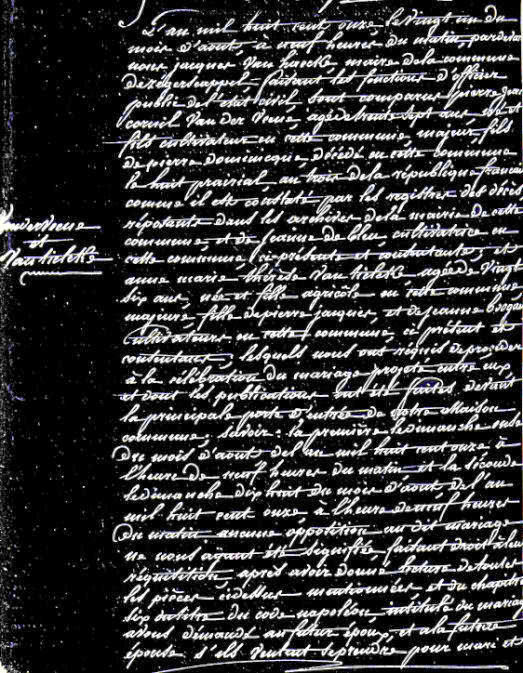 L'an mil huit cent onze, le vingt un du
mois d'aout, à neuf heures du matin, pardevant
nous jacques Van haecke maire dela commune
dezegerscappel, faisant les fonctions d'officier
public del'état civil, sont comparus pierre jean
corneil Van der Veene, agé detrente sept ans, né et
fils cultivateur en cette commune, majeur, fils
de pierre dominicque, décédé en cette commune
le huit prairial, an trois dela république française
comme il est constaté par les registres des décès
réposants dans les archives dela mairie de cette
commune, et de jeanne de bleu, cultivatrice en
Vanderveene
et
cette commune, ciprésente et consentante; et
Van
anne marie thérèse Van agée de vingt
six ans, née et fille agricole en cette commune,
majeure, fille depierre jacques, et dejeanne
cultivateurs en cette commune, ci présent et
consentants, lesquels nous ont réquis deprocéder
à la célébration du mariage projeté entre eux
et dont les publications ont été faites devant
la principale porte d'entrée de notre maison
commune, savoir: la première ledimanche onze
du mois d'aout, del'an mil huit cent onze à
l'heure de neuf heures du matin et la séconde
ledimanche dix huit du mois d'aout, de l'an
mil huit cent onze, à l'heure deneuf heures
du matin aucune opposition au dit mariage
ne nous ayant été signifiée, faisant droit à leur
réquisition, après avoir donné lecture detoutes
les pièces cidessus mentionnées et du chapitre
six dutitre du code napoléon, intitulé du mariage
avons démandé au futur époux, et ala future
épouse s'ils veulent seprendre pour mari et